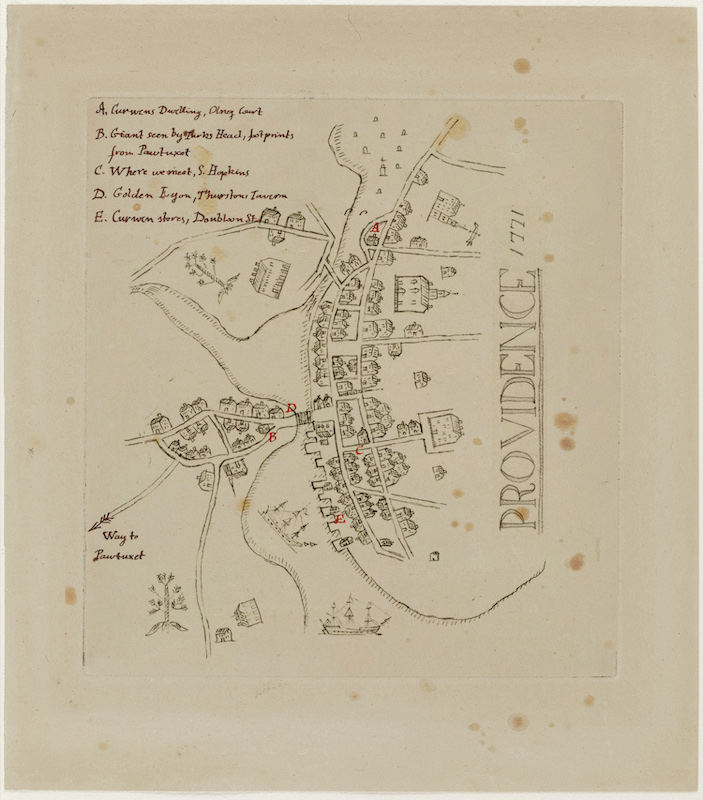 A. Curwens Dwelling, Olney Court
B. Giant seen by Thos Head, footprints
from Pawtuxet
C. Where we meet, S. Hopkins
D. Golden Lyon, Thurstons Tavern
E. Curwen stores, Doubloon St.
A
PROVIDENCE 1771
D
B
C
E
Way to
Pawtuxet